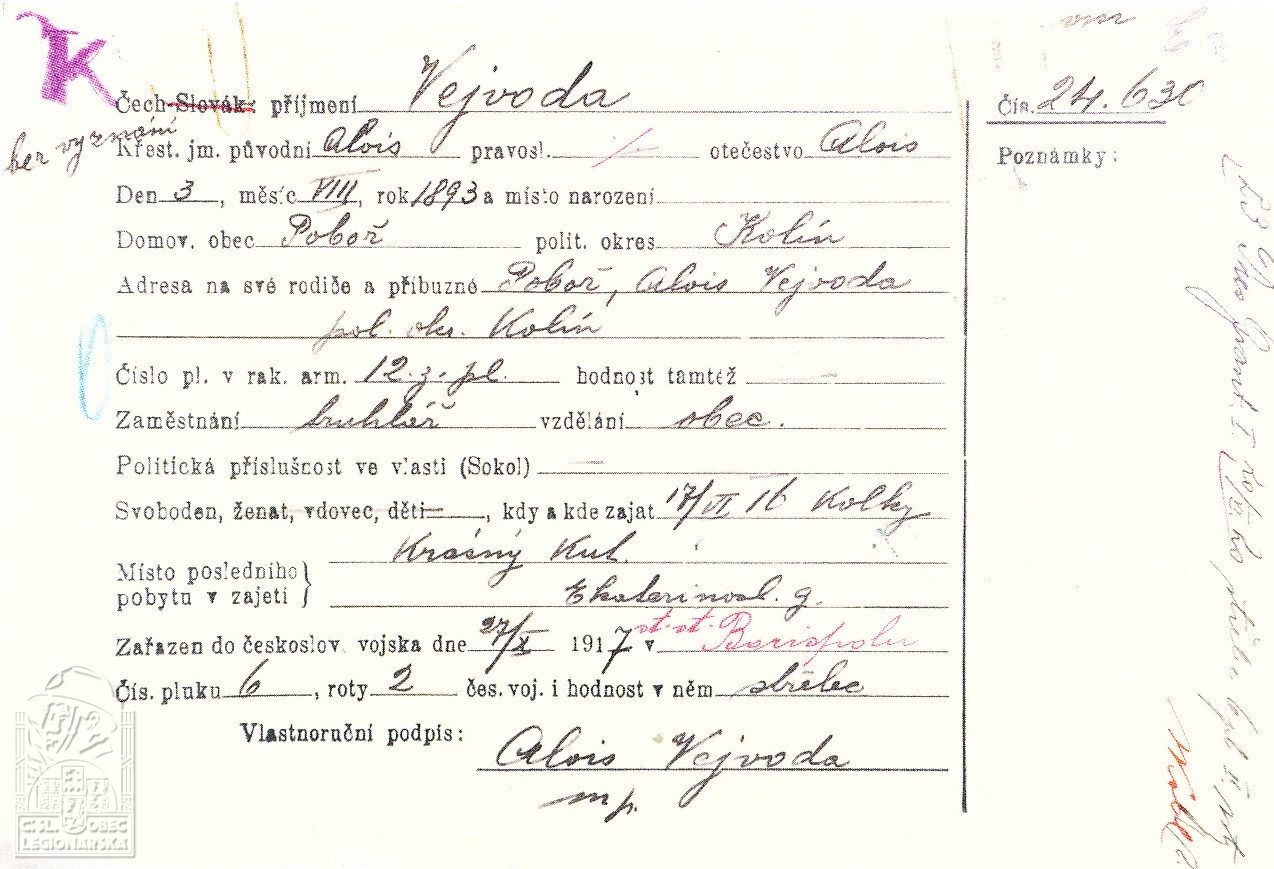 K
vm
Čech-Slovák: příjmení Vejvoda
Čís. 24.630
bez vyznání
Křest. jm. původní Alois pravosl. otečestvo Alois
Poznámky:
Den 3, měsíc VIII, rok 1893 a místo narození
Domov. obec Poboř polit. okres Kolín
Adresa na své rodiče a příbuzné Poboř, Alois Vejvoda
pol. okr. Kolín
Číslo pl. v rak. arm. 12. z. pl. hodnost tamtéž
Zaměstnání truhlář vzdělání obec.
Politická příslušnost ve vlasti (Sokol)
Svoboden, ženat, vdovec, děti, kdy a kde zajat 17/VI 16 Kolky
Místo posledního pobytu v zajetí } Krásný Kut.
Ekaterinosl. g.
Zařazen do českoslov. vojska dne 27/X 1917 v st. st. Borispolu
Čís. pluku 6, roty 2 čes. voj. i hodnost v něm střelec
Vlastnoruční podpis: Alois Vejvoda
mp.
ČSL. OBEC
LEGIONÁŘSKÁ